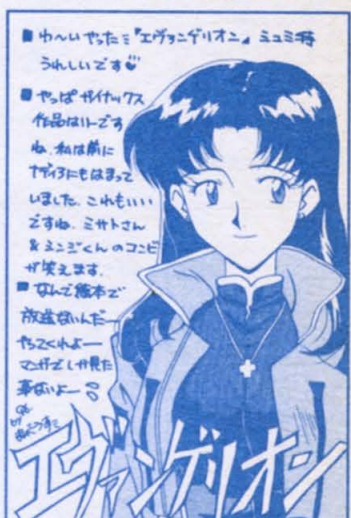 ■わ〜いやった!!『エヴァンゲリオン』ミュミ特
うれしいです♡
■やっぱガイナックス
作品はいーです
ね。私は前に
ナディアにもはまって
いました。これもいい
ですね。ミサトさん
&シンジくんのコンビ
が笑えます。
■なんで熊本で
放送ないんだー
やってくれよー
マンガでしか見た
事ないよー
by
エヴァンゲリオン